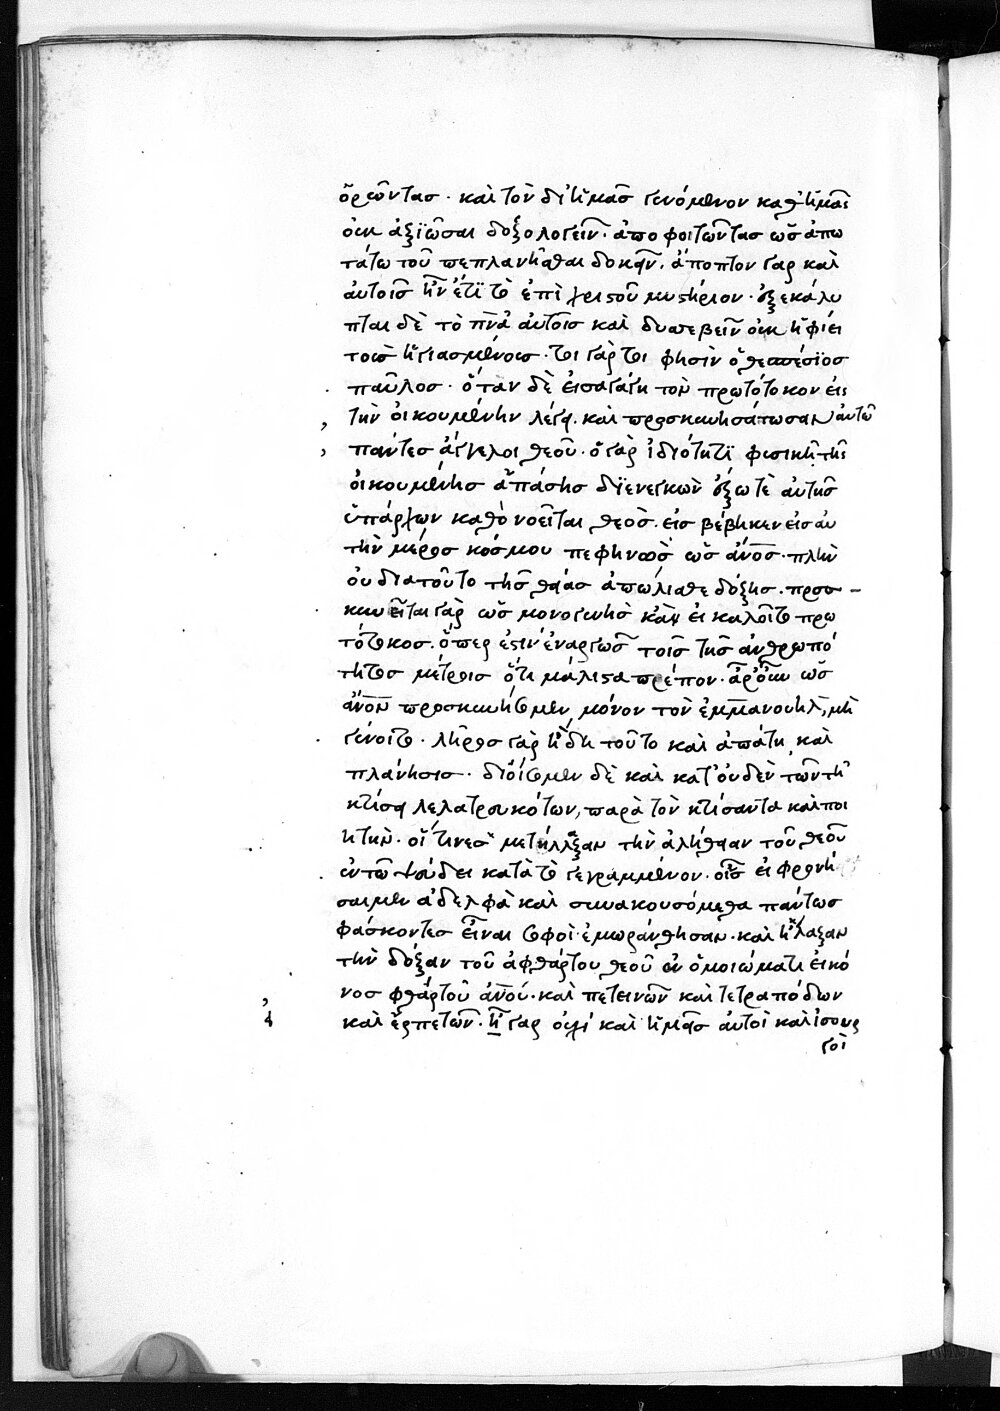 ὁρῶντας · καὶ τὸν δι' ἡμᾶς γενόμενον καθ' ἡμᾶς
οὐκ ἀξιῶσαι δοξολογεῖν · ἀποφοιτῶντας ὡς ἀπω
τάτω τοῦ πεπλανῆσθαι δοκεῖν. ἄποπτον γὰρ καὶ
αὐτοῖς ἦν ἔτι τὸ ἐπὶ χριστοῦ μυστήριον · ἐξεκάλυ
πται δὲ τὸ πνα αὐτοῖς καὶ δυσσεβεῖν οὐκ ἠφίει
τοὺς ἡγιασμένους · τοι γάρ τοι φησὶν ὁ θεσπέσιος
παῦλος · ὅταν δὲ εἰσαγάγη τὸν πρωτότοκον εἰς
τὴν οἰκουμένην λέγει. καὶ προσκυνησάτωσαν αὐτῶ
πάντες ἄγγελοι θεοῦ · ὁ γὰρ ἰδιότητι φυσικῆ τῆς
οἰκουμένης ἁπάσης διενεγκὼν ἔξω τὲ αὐτῆς
ὑπάρχων καθὸ νοεῖται θεὸς · εἰσβέβηκεν εἰς αὐ
τὴν μέρος κόσμου πεφηνὼς ὡς ἄνος · πλὴν
οὐ διατοῦτο τῆς θείας ἀπώλισθε δόξης · προσ
κυνεῖται γὰρ ὡς μονογενὴς κἂν εἰ καλοῖτο πρω
τότοκος · ὅπερ ἐστὶν ἐναργῶς τοῖς τῆς ἀνθρωπό
τητος μέτροις ὅτι μάλιστα πρέπον · ἆρ' οὖν ὡς
ἄνον προσκυνήσομεν, μόνον τὸν ἐμμανουήλ, μὴ
γένοιτο · λῆρος γὰρ ἤδη τοῦτο καὶ ἀπάτη, καὶ
πλάνησις · διοίσομεν δὲ καὶ κατ' οὐδὲν τῶν τῆ
κτίσει λελατρευκότων, παρὰ τὸν κτίσαντα καὶ ποι
ητὴν · οἵτινες μετήλλαξαν τὴν ἀλήθειαν τοῦ θεοῦ
ἐν τῶ ψεύδει κατὰ τὸ γεγραμμένον · οἷς εἰ φρονή
σαιμεν ἀδελφὰ καὶ συνακουσόμεθα πάντως
φάσκοντες εἶναι σοφοὶ · ἐμωράνθησαν · καὶ ἤλλαξαν
τὴν δόξαν τοῦ ἀφθάρτου θεοῦ ἐν ὁμοιώματι εἰκό
νος φθαρτοῦ ἀνου · καὶ πετεινῶν καὶ τετραπόδων
καὶ ἑρπετῶν · ἦ γὰρ οὐχὶ καὶ ἡμᾶς αὐτοὶ καὶ ἴσους
γοὶ